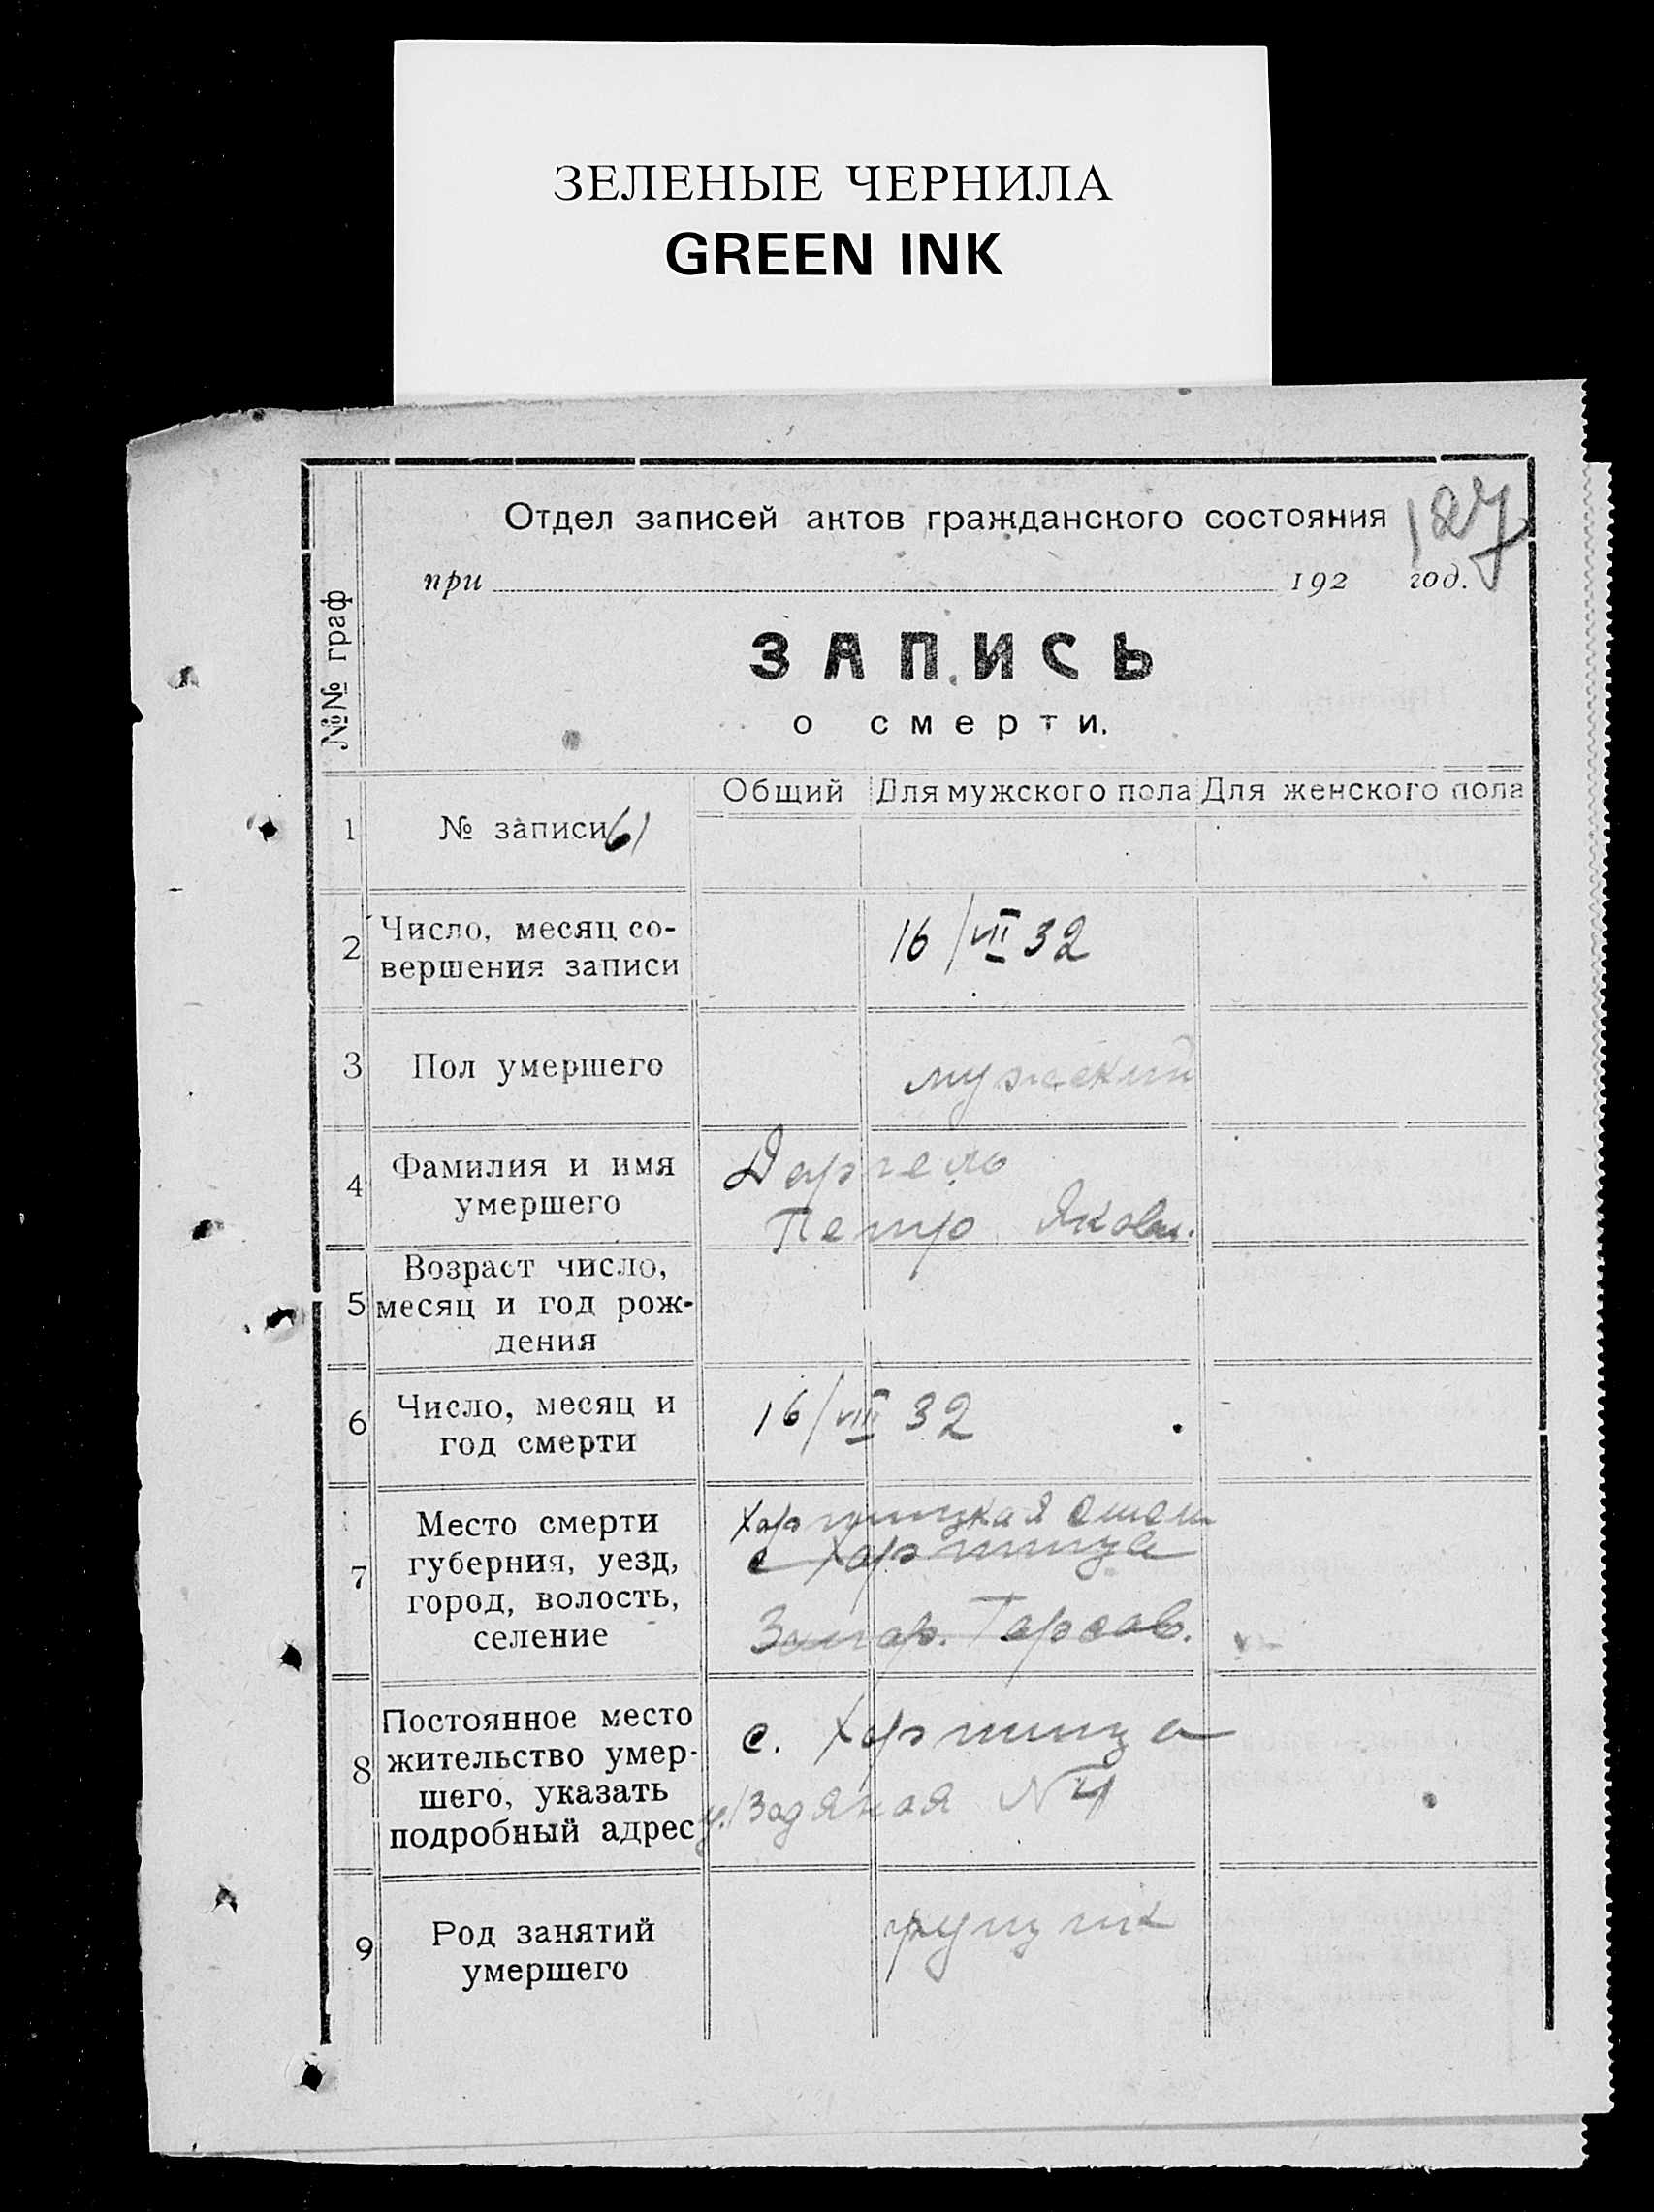 ЗЕЛЕНЫЕ ЧЕРНИЛА
GREEN INK
127
Отдел записей актов гражданского состояния
при 192 год.
ЗАПИСЬ
о смерти.
№№ граф
Общий Для мужского пола Для женского пола
1 № записи 61
2 Число, месяц со-
вершения записи
16/VII 32
3 Пол умершего мужеский
4 Фамилия и имя
умершего
Дергель
Петро Яковл.
5 Возраст число,
месяц и год рож-
дения
6 Число, месяц и
год смерти
16/VIII 32
7 Место смерти
губерния, уезд,
город, волость,
селение
с Хортица
8 Постоянное место
жительство умер-
шего, указать
подробный адрес
с. Хортица
у. Водяная № 4
9 Род занятий
умершего